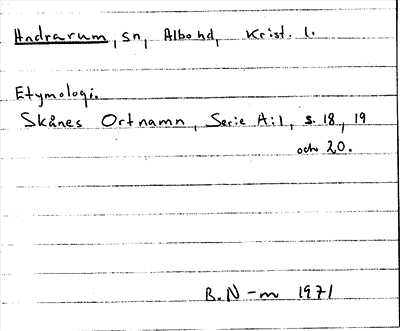 Andrarum, sn, Albo hd, Krist. l.
Etymologi.
Skånes Ortnamn, Serie A:1, s. 18, 19
och 20.
B.N-m 1971